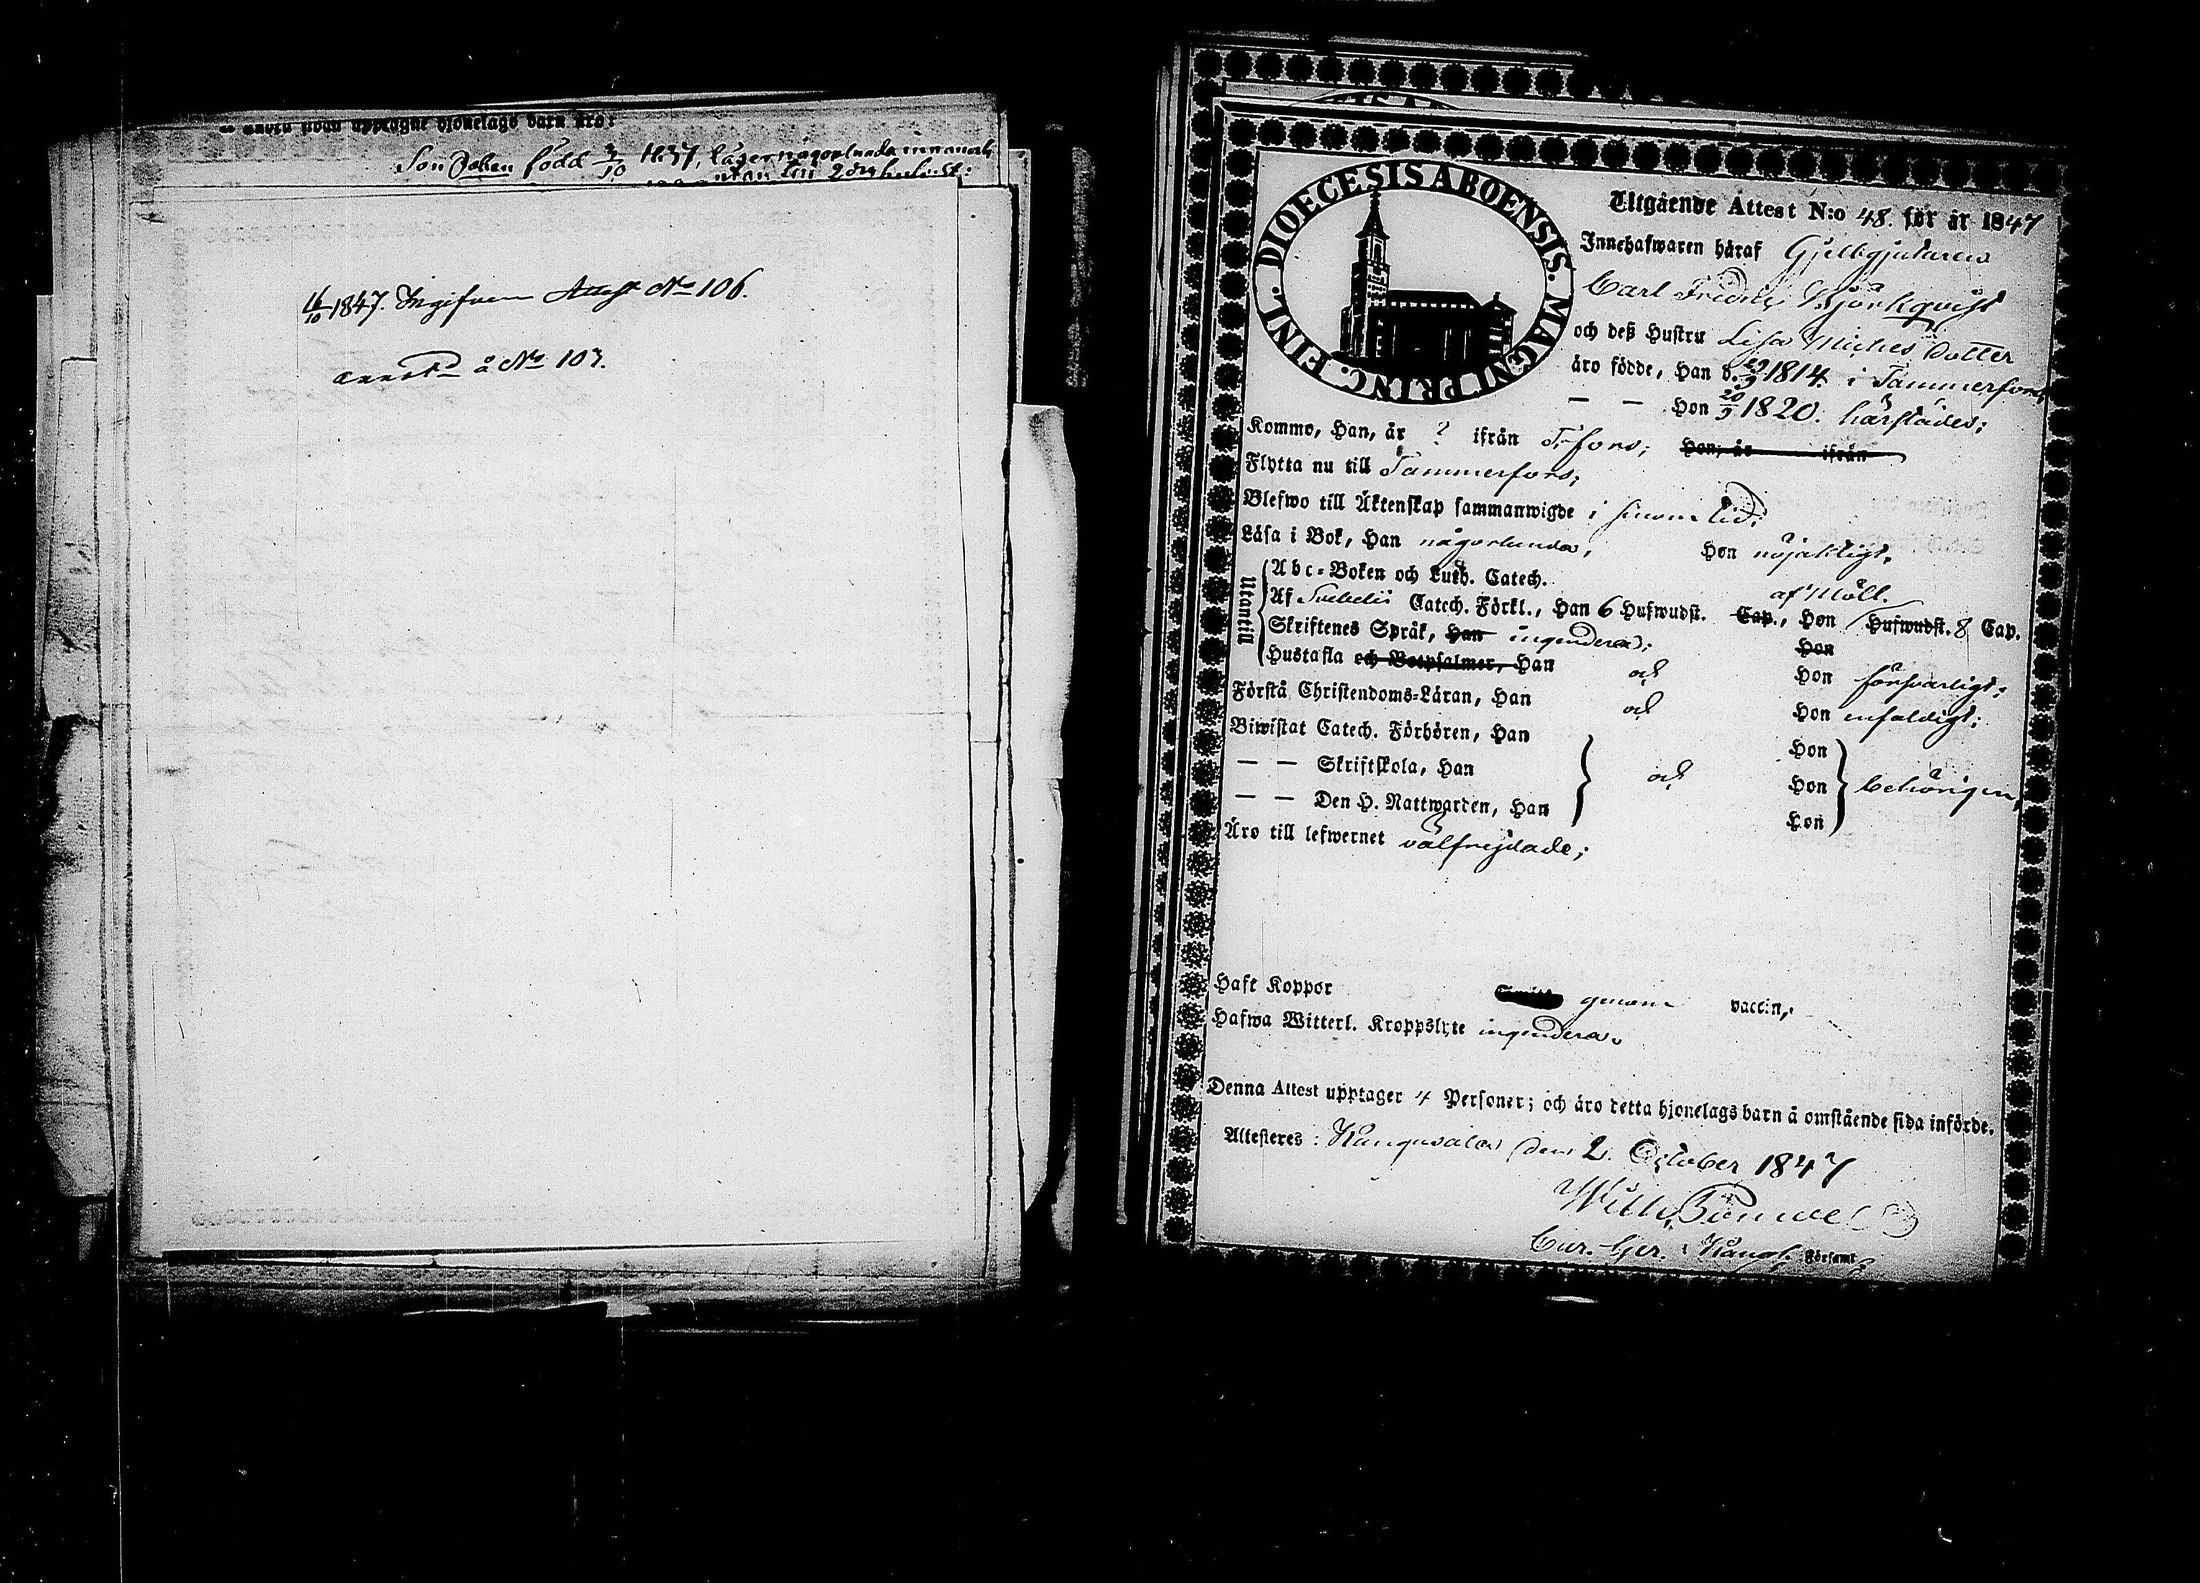 å andra sidan upptagne hjonelags barn äro:
Son Johan född 3/10 1837, läser någorlunda innanals
16/10 1847. Ingifven Attest No 106.
å No 103.
DIOECESIS ABOENSIS. MAGNI PRINC. FINL.
Utgående Attest N:o 48. för år 1847
Innehafwaren häraf Gjelbgjutaren
Carl Fredric Björkqvist
och deß Hustru Lisa Michels dotter
äro födde, Han d. 1814 i Tammerfors,
— — Hon 20/9 1820. härstädes;
Kommo, Han, år ? ifrån T:fors; Hon, år ifrån
Flytta nu till Tammerfors;
Blefwo till Äktenskap sammanwigde i sinom tid;
Läsa i Bok, Han någorlunda, Hon nöjaktigt,
Utantill
Abc-Boken och Luth. Catech.
af Möll.
Af Svebelii Catech. Förkl., Han 6 Hufwudst. Cap., Hon Hufwudst. 8 Cap.
Skriftenes Språk, Han ingendera; Hon
Hustafla och Botpsalmer, Han och Hon försvarligt;
Förstå Christendoms-Läran, Han och Hon enfaldigt;
Biwistat Catech. Förhören, Han Hon
— — Skriftskola, Han och Hon behörigen,
— — Den H. Nattwarden, Han Hon
Äro till lefwernet välfrejdade;
Haft Koppor genom vaccin,
Hafwa Witterl. Kroppslyte ingendera.
Denna Attest upptager 4 Personer; och äro detta hjonelags barn å omstående sida införde.
Attesteres: Kangasala den 2. October 1847
Wilh.
Cur. Ger. i Kangl. Församl.